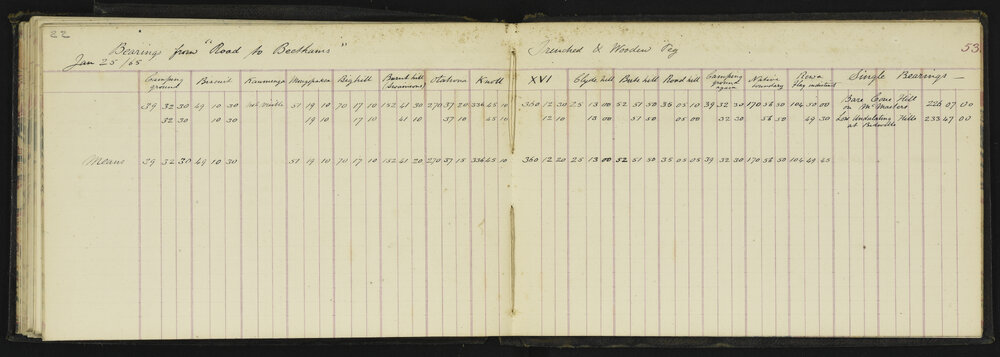 22
Bearings from "Road to Beethams" Trenched & Wooden Peg 53
Jan 25/65
Camping ground Biscuit Kanuunga Maungapakeha Big hill Burnt hill (Beaumonts) Otahoua Knott XVI Clyde hill Bute hill Road hill Camping ground again Native boundary Rewa flag indistinct Single Bearings
39 32 30 49 10 30 not visible 51 19 10 70 17 10 152 41 30 270 37 20 336 45 10 360 12 30 25 13 00 52 51 50 35 05 10 39 32 30 170 58 50 104 50 00 Bare Cone Hill on McMasters 226 07 00
32 30 10 30 19 10 17 10 41 10 37 10 45 10 12 10 13 00 51 50 05 00 32 30 56 50 49 30 Low Undulating Hills at Bidwills 233 47 00
Means 39 32 30 49 10 30 51 19 10 70 17 10 152 41 20 270 37 15 336 45 10 360 12 20 25 13 00 52 51 50 35 05 05 39 32 30 170 56 50 104 49 45